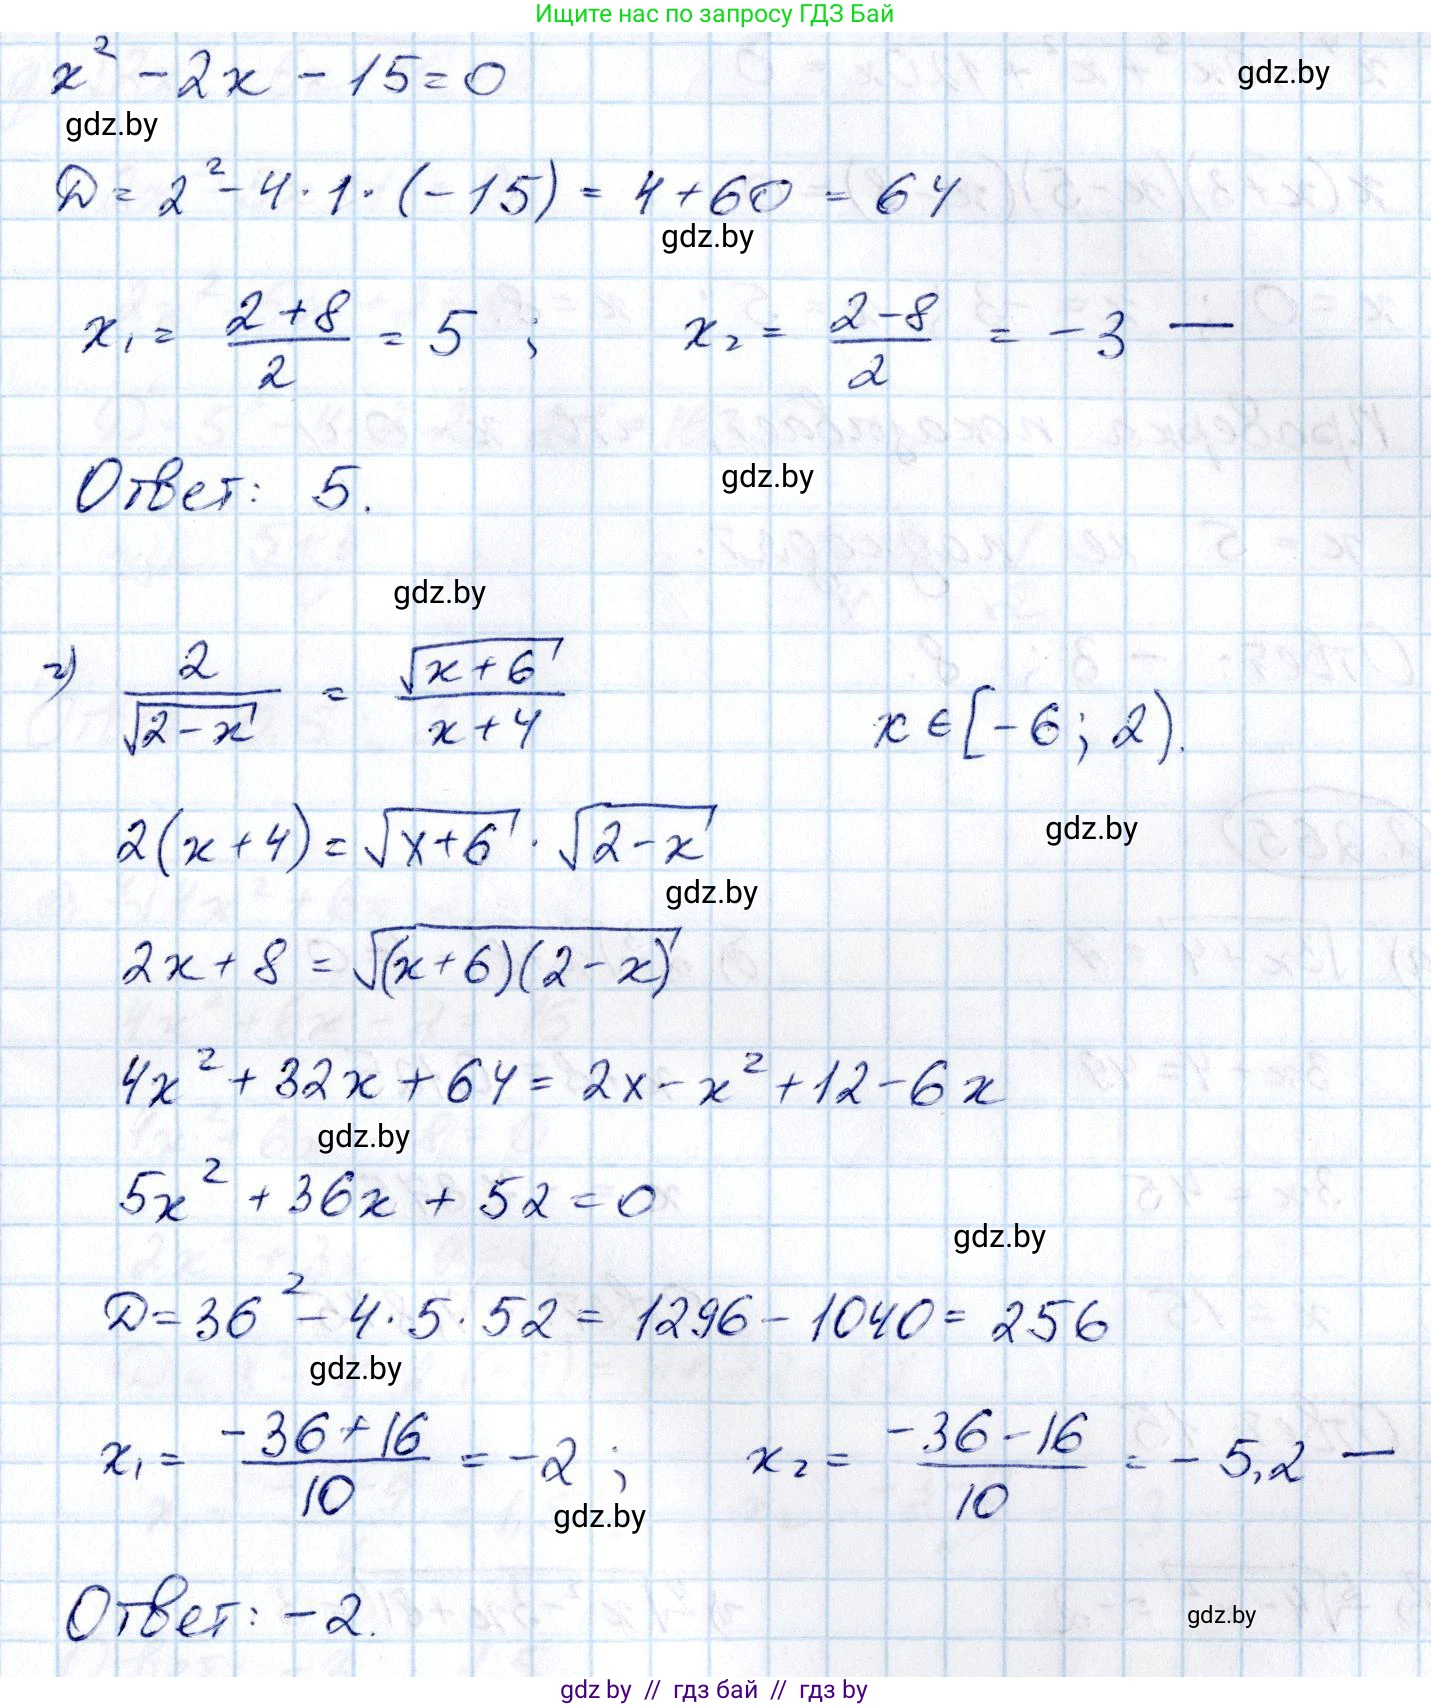 Ищите нас по запросу ГДЗ Бай
x² - 2x - 15 = 0
gdz.by
gdz.by
D = 2² - 4 · 1 · (-15) = 4 + 60 = 64
gdz.by
x₁ = (2+8)/2 = 5 ; x₂ = (2-8)/2 = -3 —
Ответ: 5.
gdz.by
gdz.by
г) 2/√(2-x) = √(x+6)/(x+4) x ∈ [-6; 2).
2(x+4) = √(x+6) · √(2-x)
gdz.by
gdz.by
2x + 8 = √((x+6)(2-x))
4x² + 32x + 64 = 2x - x² + 12 - 6x
gdz.by
5x² + 36x + 52 = 0
gdz.by
D = 36² - 4 · 5 · 52 = 1296 - 1040 = 256
gdz.by
x₁ = (-36+16)/10 = -2 ; x₂ = (-36-16)/10 = -5,2 —
gdz.by
Ответ: -2.
gdz.by
gdz by // гдз бай // гдз by